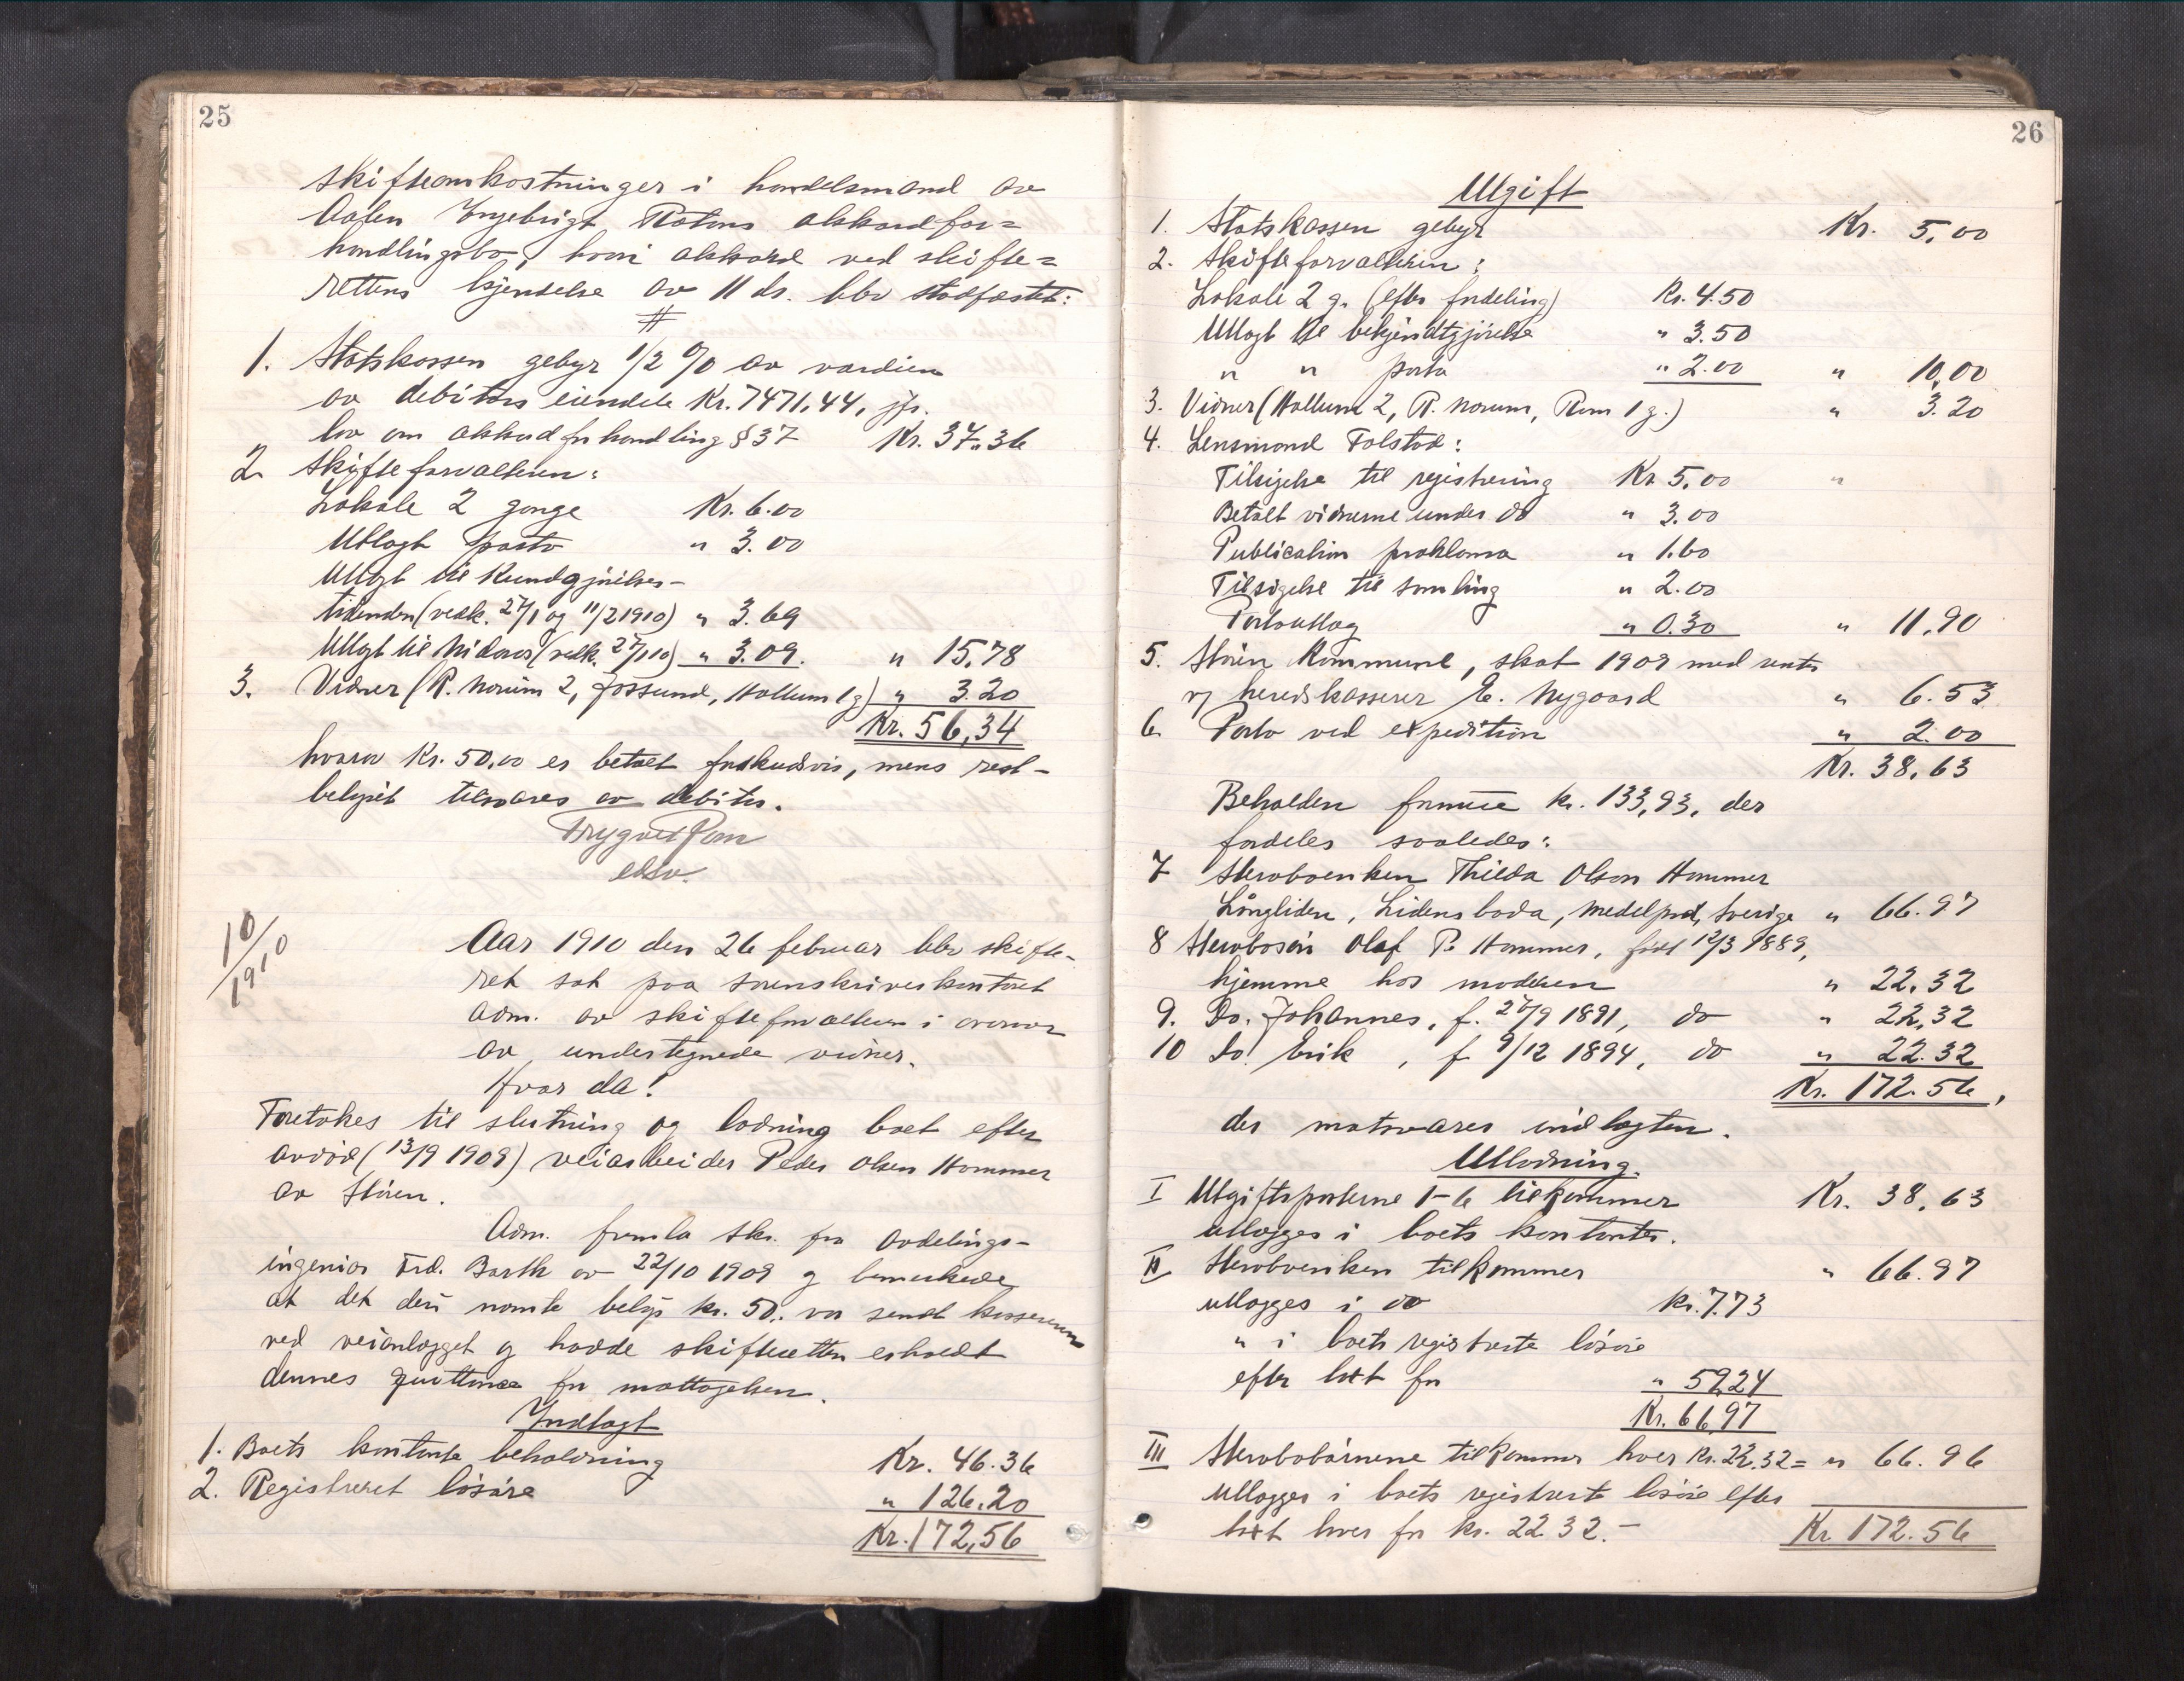 25
Skifteomkostninger i handelsmand av
Aalen Ingebrigt Rotens akkordfor=
handlingsbo, hvori akkord ved skifte=
rettens kjendelse av 11 ds. blev stadfæstet:
1. Statskassen gebyr 1/2 % av værdien
av debitors eiendele Kr. 7471.44, jfr.
lov om akkordforhandling § 37 Kr. 37.36
2. Skifteforvalteren:
Lokale 2 gange Kr. 6.00
Utlagt porto " 3.00
Utlagt til Kundgjørelses-
tidenden (vedk. 27/1 og 11/2 1910) " 3.69
Utlagt til Nidaros (vedk. 27/1 10) " 3.09. " 15.78
3. Vidner (R. Norum 2, Fossund, Hollum 1 g) " 3.20
Kr. 56,34
hvorav Kr. 50,00 er betalt forskudsvis, mens rest-
beløpet tilsvares av debitor.
Trygve Rom
edsv.
10/1910
Aar 1910 den 26 februar blev skifte-
ret sat paa sorenskriverkontoret
adm. av skifteforvalteren i overvær
av undertegnede vidner.
Hvor da!
Foretokes til slutning og lodning boet efter
avdøde (13/9 1909) veiarbeider Peder Olsen Hammer
av Støren.
Adm. fremla skr. fra avdelings-
ingeniør Frd. Barth av 22/10 1909 og bemerkede
at det deri nævnte beløp kr. 50.. var sendt kassereren
ved veianlægget og hadde skifteretten erholdt
dennes quittance for mottagelsen.
Indtægt
1. Boets kontante beholdning Kr. 46.36
2. Registreret løsøre " 126.20
Kr. 172,56
26
Utgift
1. Statskassen gebyr Kr. 5.00
2. Skifteforvalteren:
Lokale 2 g. (efter fordeling) Kr. 4.50
Utlagt til bekjendtgjørelse " 3.50
" " porto " 2.00 " 10.00
3. Vidner (Hollum 2, R. Norum, Rom 1 g.) " 3.20
4. Lensmand Folstad:
Tilsigelse til registrering Kr 5.00 "
Betalt vidnerne under do " 3.00
Publication proklama " 1.60
Tilsigelse til samling " 2.00
Portoutlæg " 0.30 " 11.90
5. Støren Kommune, skat 1909 med renter
v/ herredskasserer E. Nygaard " 6.53
6. Porto ved expedition " 2.00
Kr. 38.63
Beholden formue kr. 133,93, der
fordeles saaledes:
7 Stervboenken Thilda Olson Hammer
Långliden, Lidens boda, Medelpad, Sverige " 66.97
8 Stervbosøn Olaf P. Hammer, født 12/3 1889,
hjemme hos moderen " 22.32
9. Do. Johannes, f. 27/9 1891, do " 22,32
10 Do. Erik, f 9/12 1894, do " 22.32
Kr. 172.56,
der motsvarer indtægten.
Utlodning.
I Utgiftsposterne 1-6 tilkommer Kr. 38,63
utlægges i boets kontanter.
II Stervboenken tilkommer " 66.97
utlægges i do Kr. 7.73
" i boets registrerte løsøre
efter takst for " 59,24
Kr. 66,97
III Stervbobørnene tilkommer hver Kr. 22.32= " 66.96
utlægges i boets registrerte løsøre efter
takst hver for kr. 22 32.- Kr 172.56